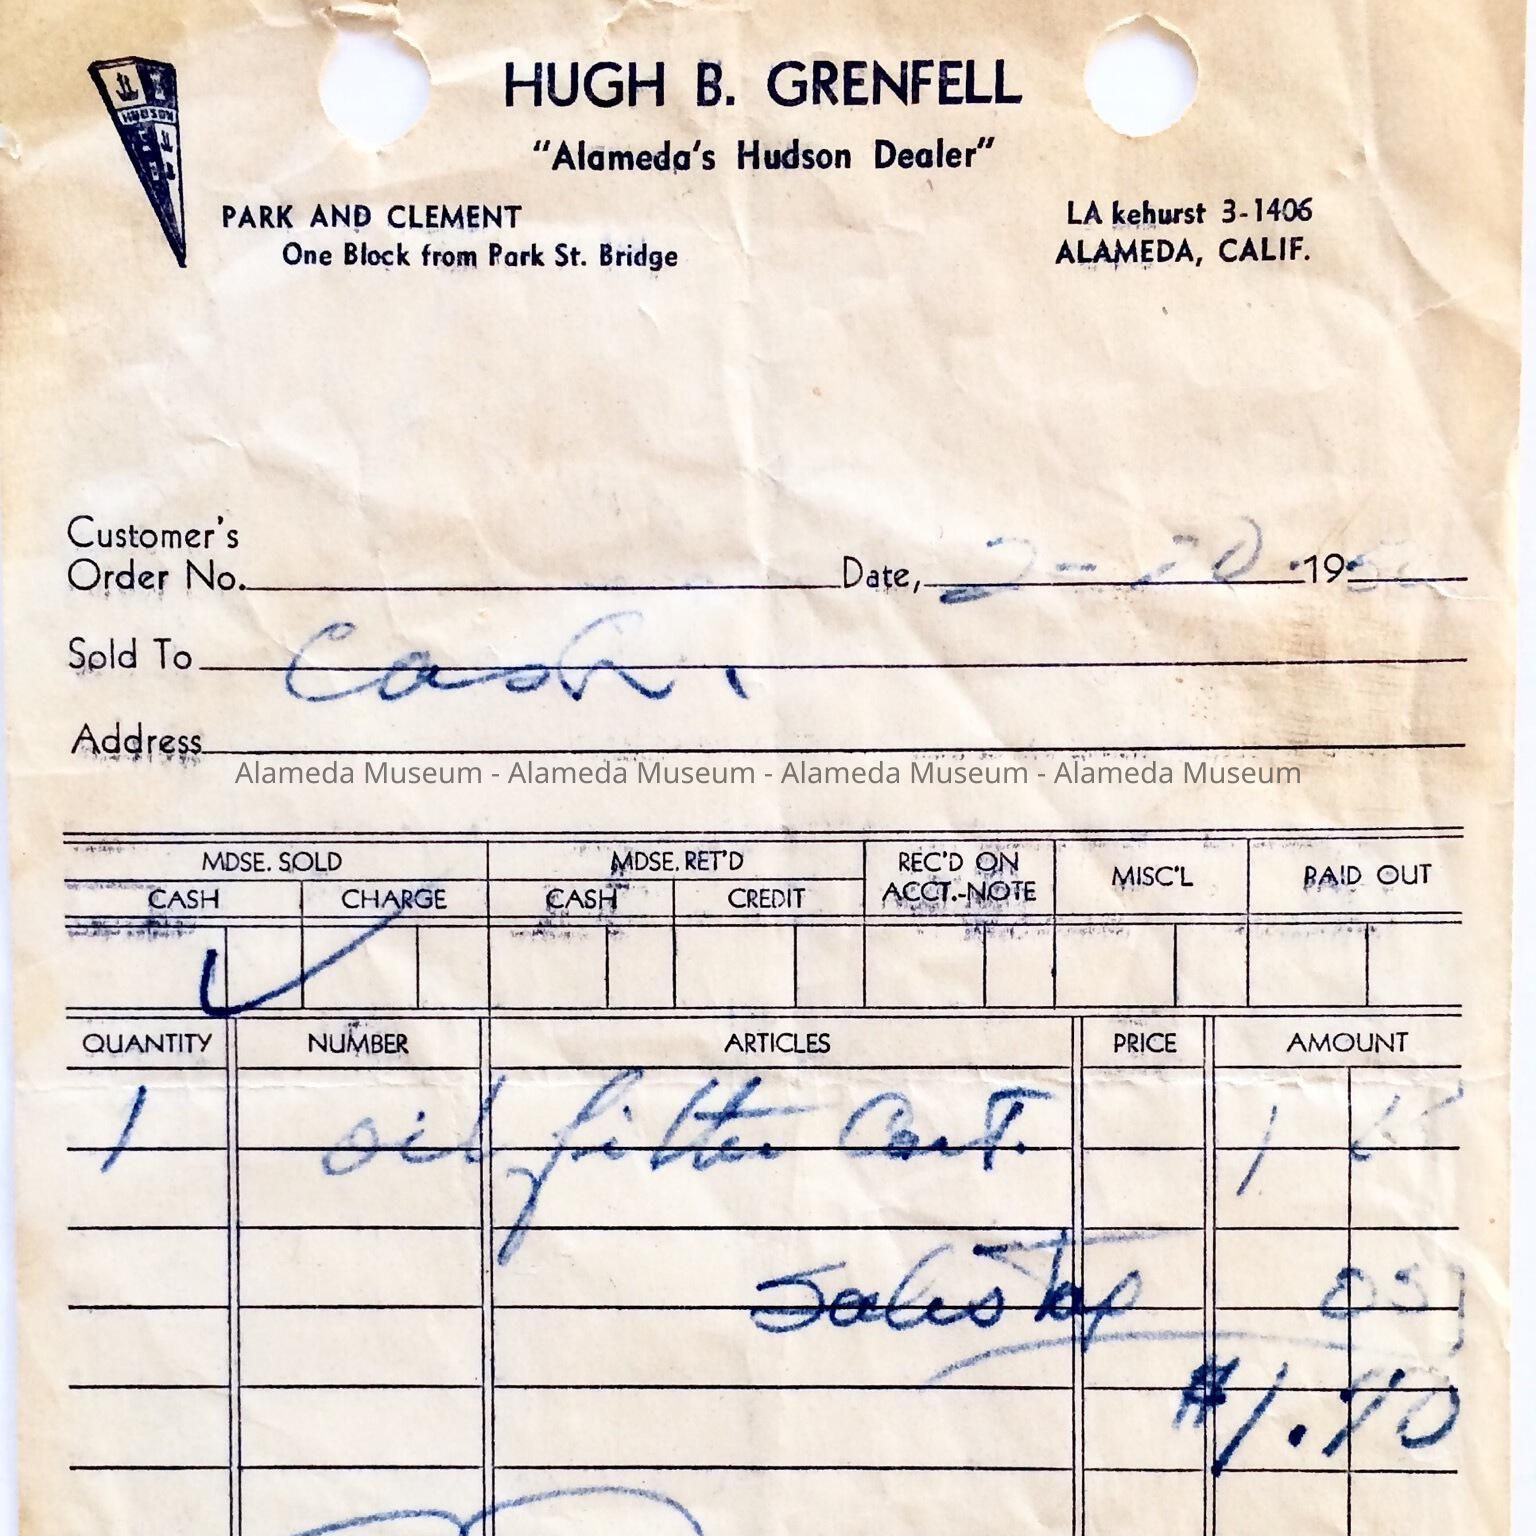 HUDSON
HUGH B. GRENFELL
"Alameda's Hudson Dealer"
PARK AND CLEMENT
One Block from Park St. Bridge
LA kehurst 3-1406
ALAMEDA, CALIF.
Customer's
Order No. Date, 2-20 19
Sold To Cash.
Address
Alameda Museum - Alameda Museum - Alameda Museum - Alameda Museum
MDSE. SOLD MDSE. RET'D REC'D ON ACCT.-NOTE MISC'L PAID OUT
CASH CHARGE CASH CREDIT
QUANTITY NUMBER ARTICLES PRICE AMOUNT
1 oil filter Cart. 1
Sales Tax 05
$1.90